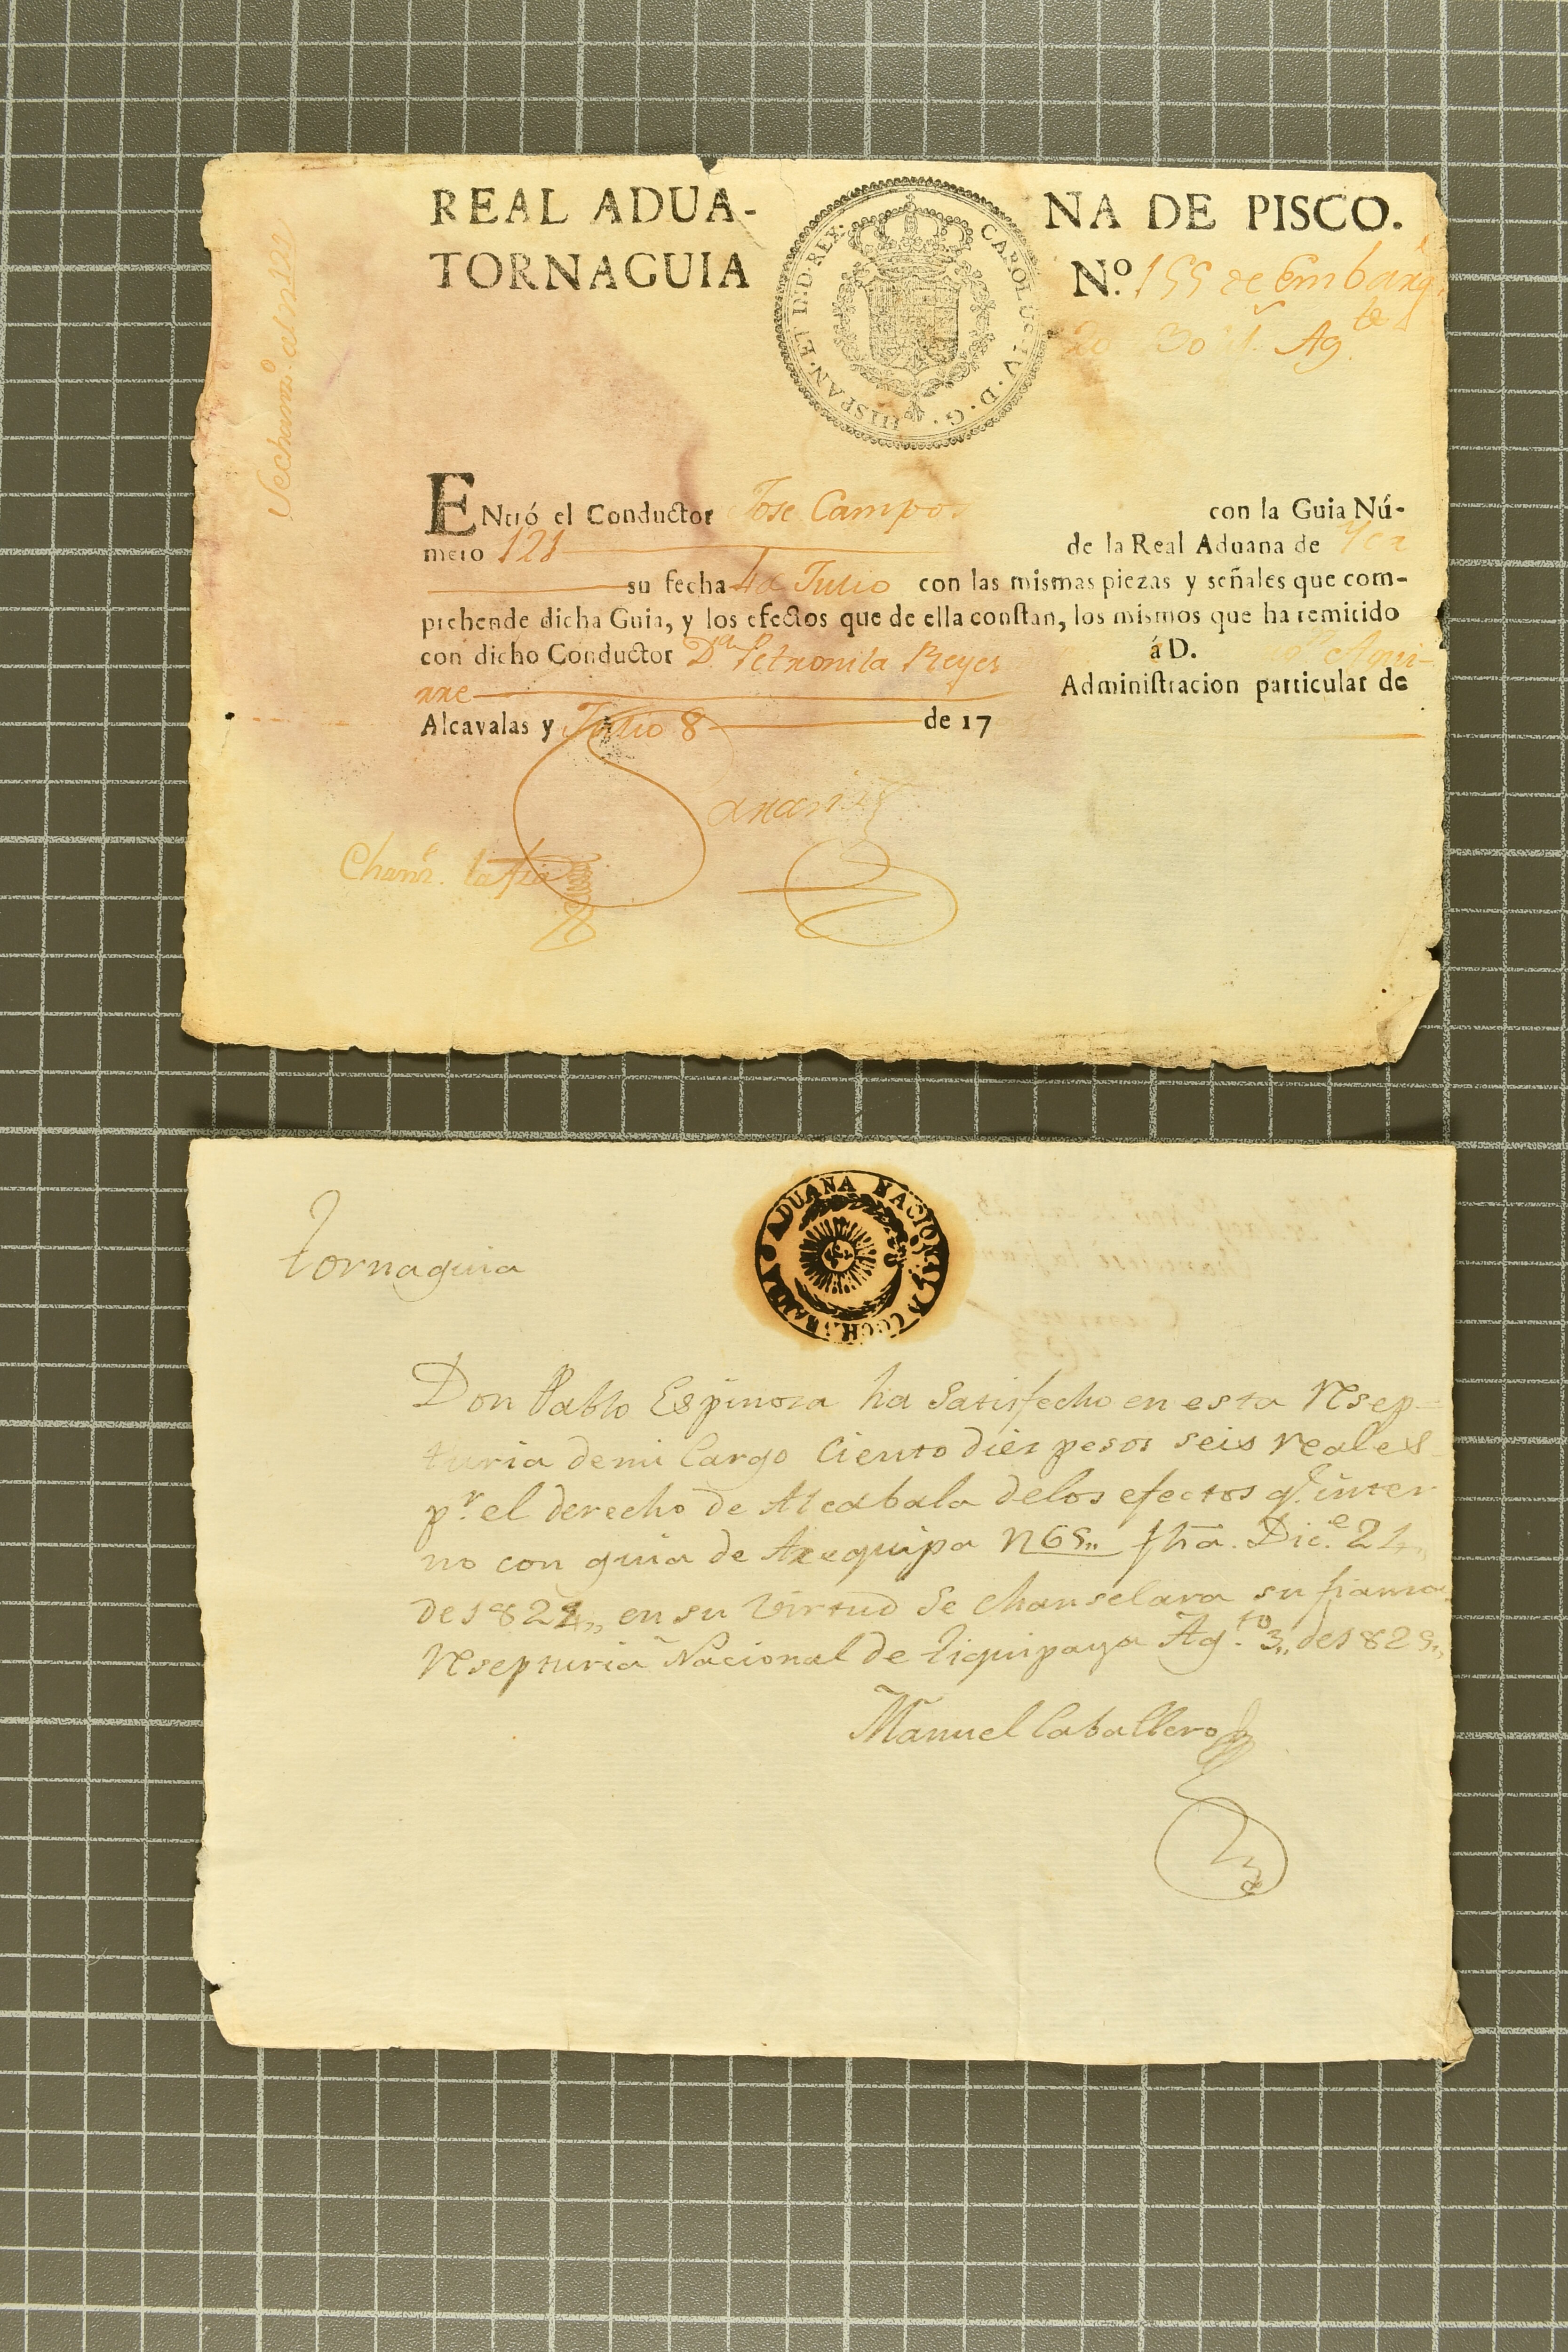 REAL ADUA- NA DE PISCO.
TORNAGUIA N.º 155 de Embarq
30 Ag.te
CAROLUS·IV·D·G·HISPAN·ET IND·REX·
ENtró el Conductor Jose Campos con la Guia Nú-
mero 121 de la Real Aduana de Yca
su fecha 4 d Julio con las mismas piezas y señales que com-
prehende dicha Guia, y los efectos que de ella constan, los mismos que ha remitido
con dicho Conductor D.ª Petronila Reyes á D. Agui-
rre Administracion particular de
Alcavalas y Julio 8 de 17
Chanz.e la fza
Tornaguia
ADUANA NACIONAL D COCHABAMBA
Don Pablo Espinoza ha Satisfecho en esta Resep-
turia de mi Cargo Ciento diez pesos seis reales
p.r el derecho de Alcabala delos efectos q.e inter
no con guia de Arequipa N 65,, fha. Dic.e 21,,
de 1824,, en su Virtud Se Chanselara su fianza
Resepturia Nacional de Tiquipaya Ag.to 3,, de 1825,,
Manuel Caballero